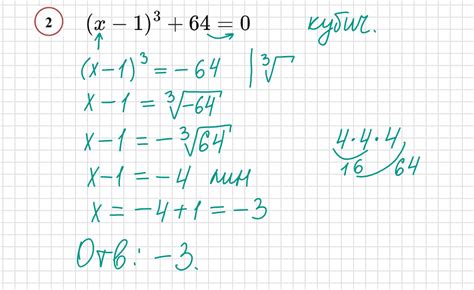 2 (x − 1)³ + 64 = 0 кубич.
(x−1)³ = −64 | ∛
x−1 = ∛−64
x−1 = −∛64
4·4·4
16 64
x−1 = −4 лин
x = −4+1 = −3
Отв: −3.